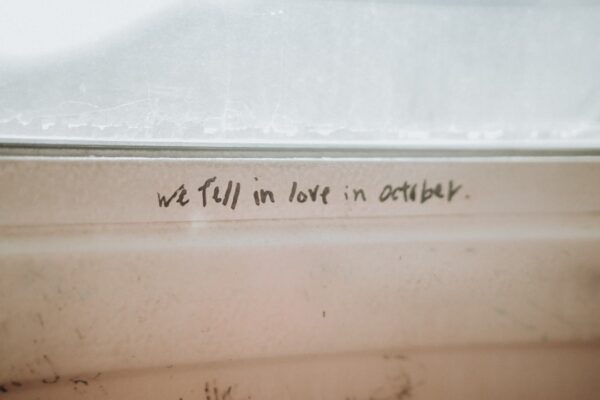 we fell in love in october.